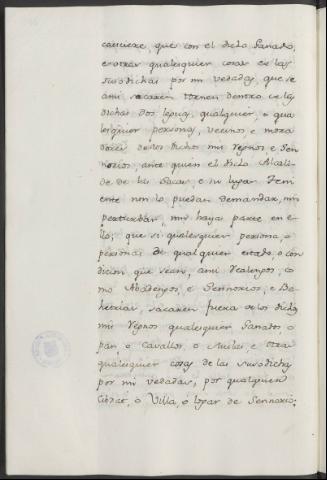 caeciere, que con el dicho Ganado,
e otras qualesquier cosas de las
susodichas por mi vedadas, que se
ansi sacaren tomen dentro de las
dichas dos leguas, qualquier, o qua
lesquier personas, vecinos, e mora
dores de los dichos mis Reynos e Sen
norios, ante quien el dicho Alcal
de de las Sacas, e su lugar Teni
ente non lo puedan demandar, nin
perturbar, nin haya parte en e
llo; que si qualesquier persona, o
personas de qualquier estado, o con
dicion que sean, ansi Realengos, co
mo Abadengos, e Sennorios, e Be
hetrias, sacaren fuera de los dichos
mis Reynos qualesquier Ganados, o
pan, o Cavallos, o Mulas, e otras
qualesquier cosas de las susodichas
por mi vedadas, por qualquier
Cibdat, o Villa, o logar de Sennorio;